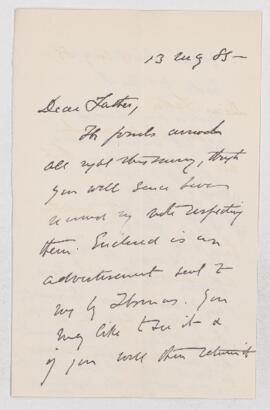 13 Aug 85
Dear Father,
The fossils arrived
all right this morning, though
you will since have
received my note respecting
them. Enclosed is an
advertisement sent to
me by Thomas. You
may like to see it &
if you will then